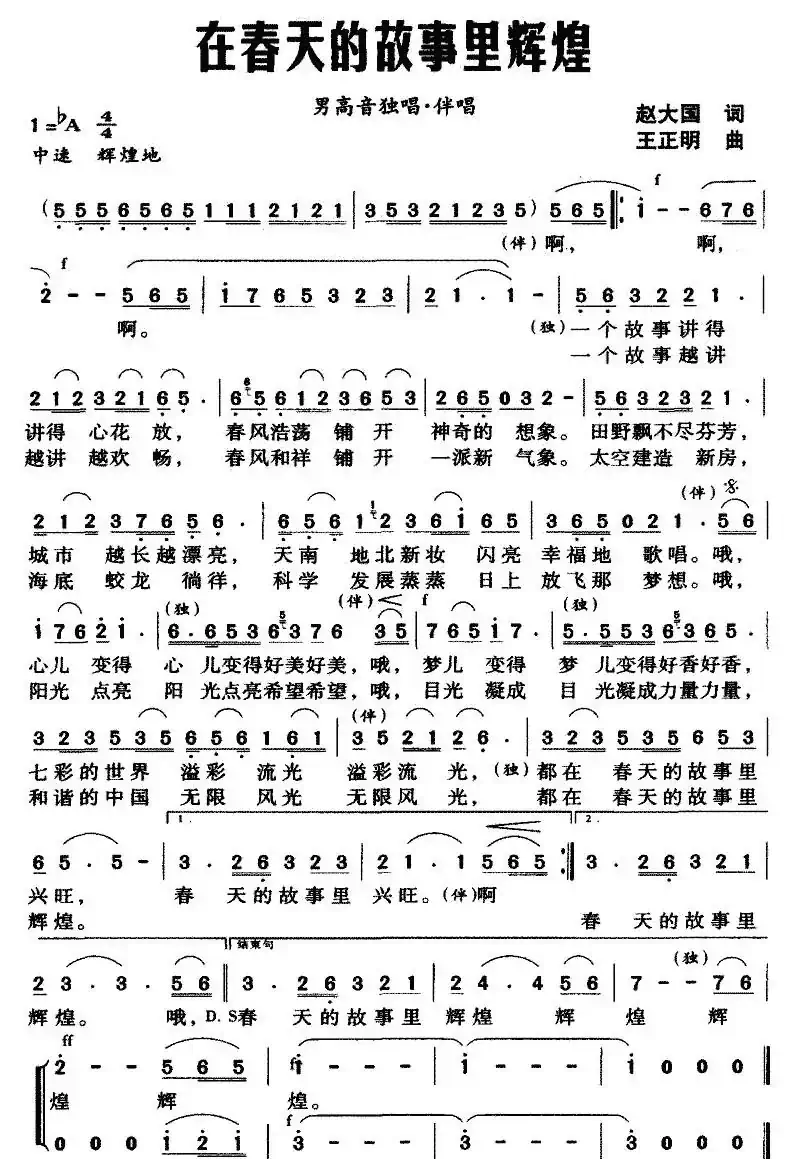 在春天的故事里辉煌
男高音独唱·伴唱
1=♭A 4/4
赵大国 词
中速 辉煌地
王正明 曲
f
(5 5 5 6 5 6 5 1 1 1 2 1 2 1 | 3 5 3 2 1 2 3 5) 5 6 5 |: i - - 6 7 6 |
(伴)啊, 啊,
f
2 - - 5 6 5 | i 7 6 5 3 2 3 | 2 1 · 1 - | 5 6 3 2 2 1 ·
啊。 (独)一个故事讲得
一个故事越讲
2 1 2 3 2 1 6 5 · | 6 5 6 1 2 3 6 5 3 | 2 6 5 0 3 2 - | 5 6 3 2 3 2 1 ·
讲得 心花 放, 春风浩荡 铺 开 神奇的 想象。 田野飘不尽芬芳,
越讲 越欢 畅, 春风和祥 铺 开 一派新 气象。 太空建造 新房,
(伴)
2 1 2 3 7 6 5 6 · | 6 5 6 1 2 3 6 i 6 5 | 3 6 5 0 2 1 · 5 6
城市 越长越漂亮, 天南 地北新妆 闪亮 幸福地 歌唱。哦,
海底 蛟龙 徜徉, 科学 发展蒸蒸 日上 放飞那 梦想。哦,
(独) (伴) f (独)
i 7 6 2 i · | 6 · 6 5 3 6 3 7 6 3 5 | 7 6 5 i 7 · | 5 · 5 5 3 6 3 6 5
心儿 变得 心 儿变得好美好美,哦, 梦儿 变得 梦 儿变得好香好香,
阳光 点亮 阳 光点亮希望希望,哦, 目光 凝成 目 光凝成力量力量,
(伴)
3 2 3 5 5 3 5 6 5 6 1 6 1 | 3 5 2 1 2 6 · | 3 2 3 5 3 5 6 5 3
七彩的世界 溢彩 流光 溢彩流 光,(独)都在 春天的故事里
和谐的中国 无限 风光 无限风 光, 都在 春天的故事里
1. 2.
6 5 · 5 - | 3 · 2 6 3 2 3 | 2 1 · 1 5 6 5 :| 3 · 2 6 3 2 1
兴旺, 春 天的故事里 兴旺。(伴)啊
辉煌。 春 天的故事里
结束句
(独)
2 3 · 3 · 5 6 | 3 · 2 6 3 2 1 | 2 4 · 4 5 6 | 7 - - 7 6
辉煌。 哦, D.S春 天的故事里 辉煌 辉 煌 辉
ff
2 - - 5 6 5 | i - - - | i - - - | i 0 0 0
煌 辉 煌。
f
0 0 0 i 2 i | 3 - - - | 3 - - - | 3 0 0 0